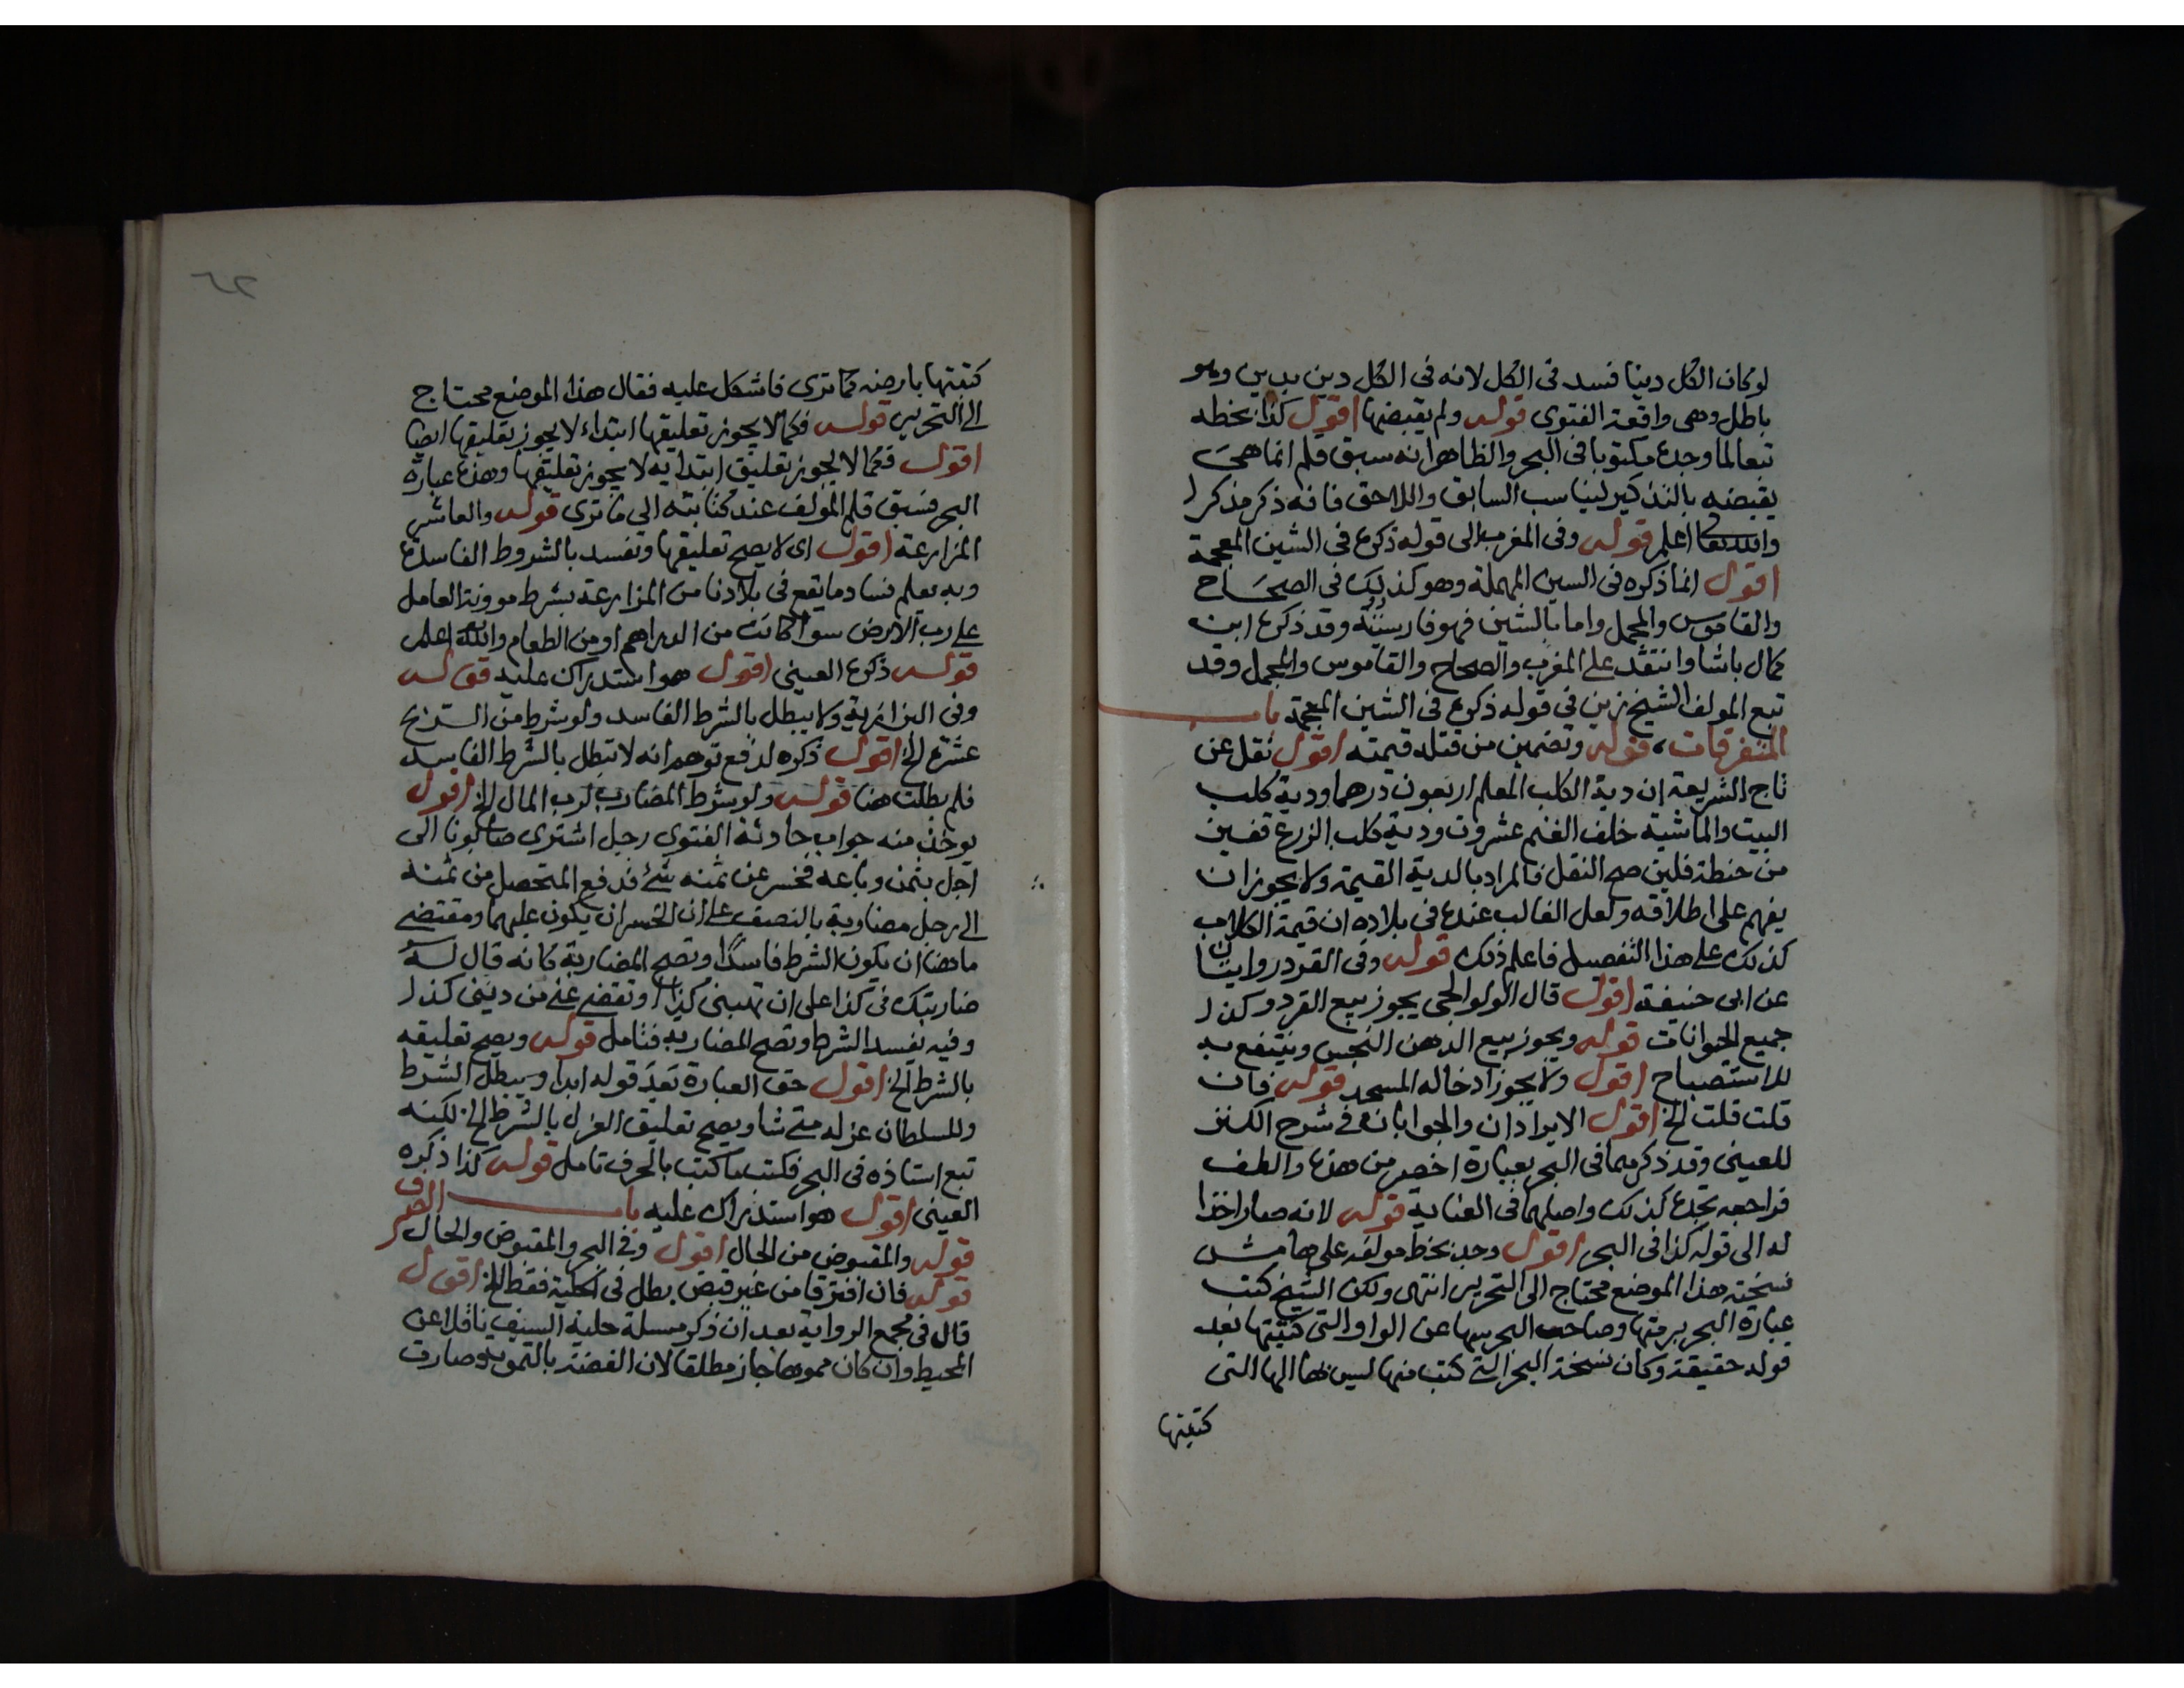 لو كان الكل دينا فسد فى الكل لانه فى الكل دين بدين وهو
باطل وهى واقعة الفتوى قوله ولم يقبضها اقول كذا بخطه
تبعا لما وجده مكتوبا فى البحر والظاهر انه سبق قلم انما هى
يقبضه بالتذكير ليناسب السابق واللاحق فانه ذكر مذكرا
والله تعالى اعلم قوله وفى المغرب الى قوله ذكره فى الشين المعجمة
اقول انما ذكره فى السين المهملة وهو كذلك فى الصحاح
والقاموس والمجمل واما بالشين فهو فارسية وقد ذكره ابن
كمال باشا وانتقد على المغرب والصحاح والقاموس والمجمل وقد
تبع المولف الشيخ زين فى قوله ذكره فى الشين المعجمة باب
المتفرقات، قوله وتضمين من قتله قيمته اقول نقل عن
تاج الشريعة ان دية الكلب المعلم اربعون درهما ودية كلب
البيت والماشية خلف الغنم عشرون ودية كلب الزرع قفيز
من حنطة فلين صح النقل فالمراد بالدية القيمة ولا يجوز ان
يفهم على اطلاقه ولعل الغالب عنده فى بلاده ان قيمة الكلاب
كذلك على هذا التفصيل فاعلم ذلك قوله وفى القرد روايتان
عن ابى حنيفة اقول قال الولوالجى يجوز بيع القرد وكذا
جميع الحيوانات قوله ويجوز بيع الدهن النجس وينتفع به
للاستصباح اقول ولا يجوز ادخاله المسجد قوله فان
قلت قلت الخ اقول الايرادان والجوابان فى شرح الكنز
للعينى وقد ذكرهما فى البحر بعبارة اخصر من هذه والطف
فراجعه تجده كذلك واصلهما فى العناية قوله لانه صار اخذا
له الى قوله كذا فى البحر اقول وجد بخط مولفه على هامش
نسخته هذا الموضع محتاج الى التحرير انتهى ولكن الشيخ كتب
عبارة البحر برمتها وصاحب البحر سها عن الواو التى كتبتها بعد
قوله حقيقة وكان نسخة البحر التى كتب منها ليس بها الها التى
كتبتها
كتبتها بارضه كما ترى فاشكل عليه فقال هذا الموضع محتاج
الى التحرير قوله فكما لا يجوز تعليقها ابتداء لا يجوز تعليقها ايضا
اقول فكما لا يجوز تعليق ابتدايه لا يجوز تعليقها وهذه عبارة
البحر فسبق قلم المولف عند كتابته الى ما ترى قوله والعاشر
المزارعة اقول اى لا يصح تعليقها وتفسد بالشروط الفاسدة
وبه يعلم فساد ما يقع فى بلادنا من المزارعة بشرط موونة العامل
على رب الارض سوا كانت من الدراهم او من الطعام والله اعلم
قوله ذكره العينى اقول هو استدراك عليه قوله
وفى البزازية ولا يبطل بالشرط الفاسد ولو شرط من الربح
عشرة الخ اقول ذكره لدفع توهم انه لا تبطل بالشرط الفاسد
فلم بطلت هنا قوله ولو شرط المضارب لرب المال الخ اقول
يوخذ منه جواب حادثة الفتوى رجل اشترى صابونا الى
اجل بثمن وباعه فخسر عن ثمنه شئ فدفع المتحصل من ثمنه
الى رجل مضاربة بالنصف على ان الخسران يكون عليهما ومقتضى
ما هنا ان يكون الشرط فاسدا وتصح المضاربة كانه قال له
ضاربتك فى كذا على ان تهبنى كذا او تقضى عنى من دينى كذا
وفيه يفسد الشرط وتصح المضاربة فتامل قوله ويصح تعليقه
بالشرط الخ اقول حق العبارة بعد قوله ابدا ويبطل الشرط
وللسلطان عزله متى شا ويصح تعليق العزل بالشرط الخ لكنه
تبع استاذه فى البحر فكتب ما كتب بالحرف تامل قوله كذا ذكره
العينى اقول هو استدراك عليه باب الصرف
قوله والمقبوض من الحال اقول وفى البحر والمقبوض والحال
قوله فان افترقا من غير قبض بطل فى الحلية فقط الخ اقول
قال فى مجمع الرواية بعد ان ذكر مسلة حلية السيف ناقلا عن
المحيط وان كان مموها جاز مطلقا لان الفضة بالتمويه صارت